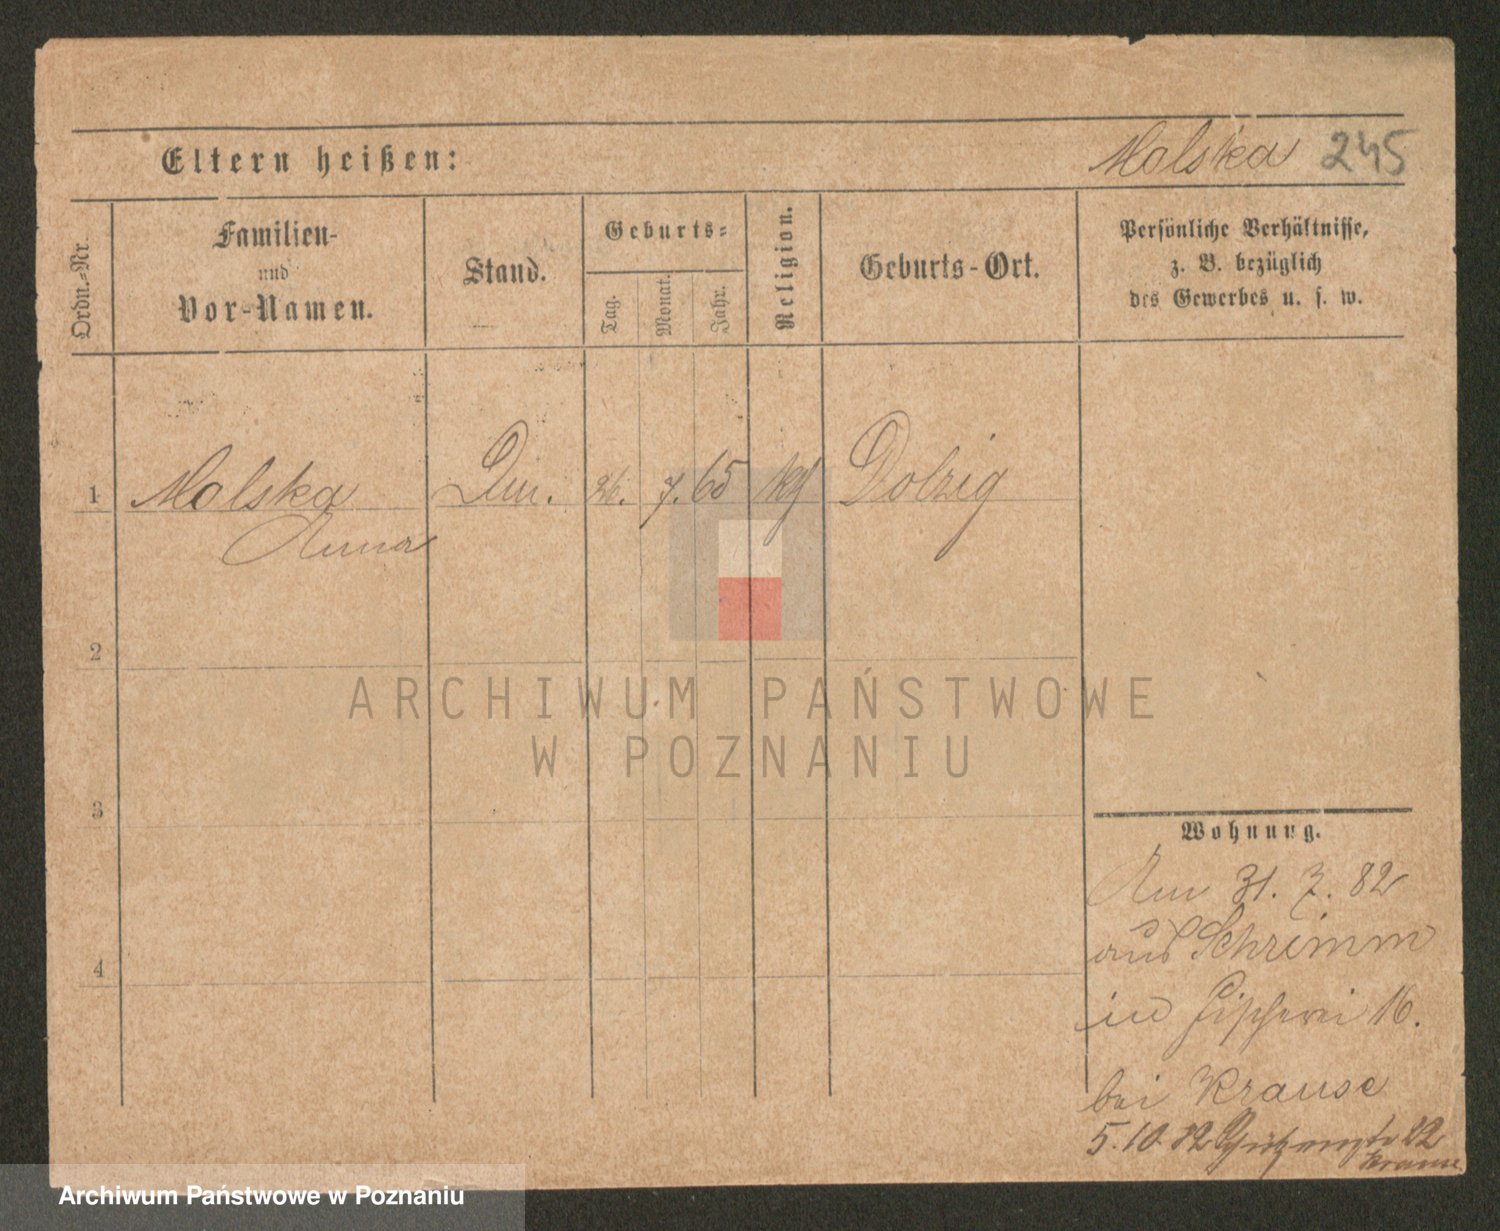 Eltern heißen:
Molska 245
Ordn.-Nr.
Familien-
und
Vor-Namen.
Stand.
Geburts-
Tag.
Monat.
Jahr.
Religion.
Geburts-Ort.
Persönliche Verhältnisse,
z. B. bezüglich
des Gewerbes u. s. w.
1 Molska Din. 26. 7. 65 kg Dolzig
Anna
2
3
4
ARCHIWUM PAŃSTWOWE
W POZNANIU
Wohnung.
Am 31. 7. 82
aus Schrimm
in Fischerei 16.
bei Krause
5.10.82 22
Krause
Archiwum Państwowe w Poznaniu